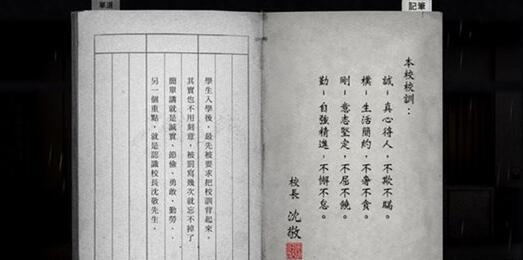 筆記
本校校訓：
誠-真心待人，不欺不瞞。
樸-生活簡約，不奢不貪。
剛-意志堅定，不屈不饒。
勤-自強精進，不懈不怠。
校長 沈敬
學生入學後，最先被要求把校訓背起來，
其實也不用刻意，被罰寫幾次就忘不掉了
簡單講就是誠實、節儉、勇敢、勤勞．
另一個重點，就是認識校長沈敬先生．